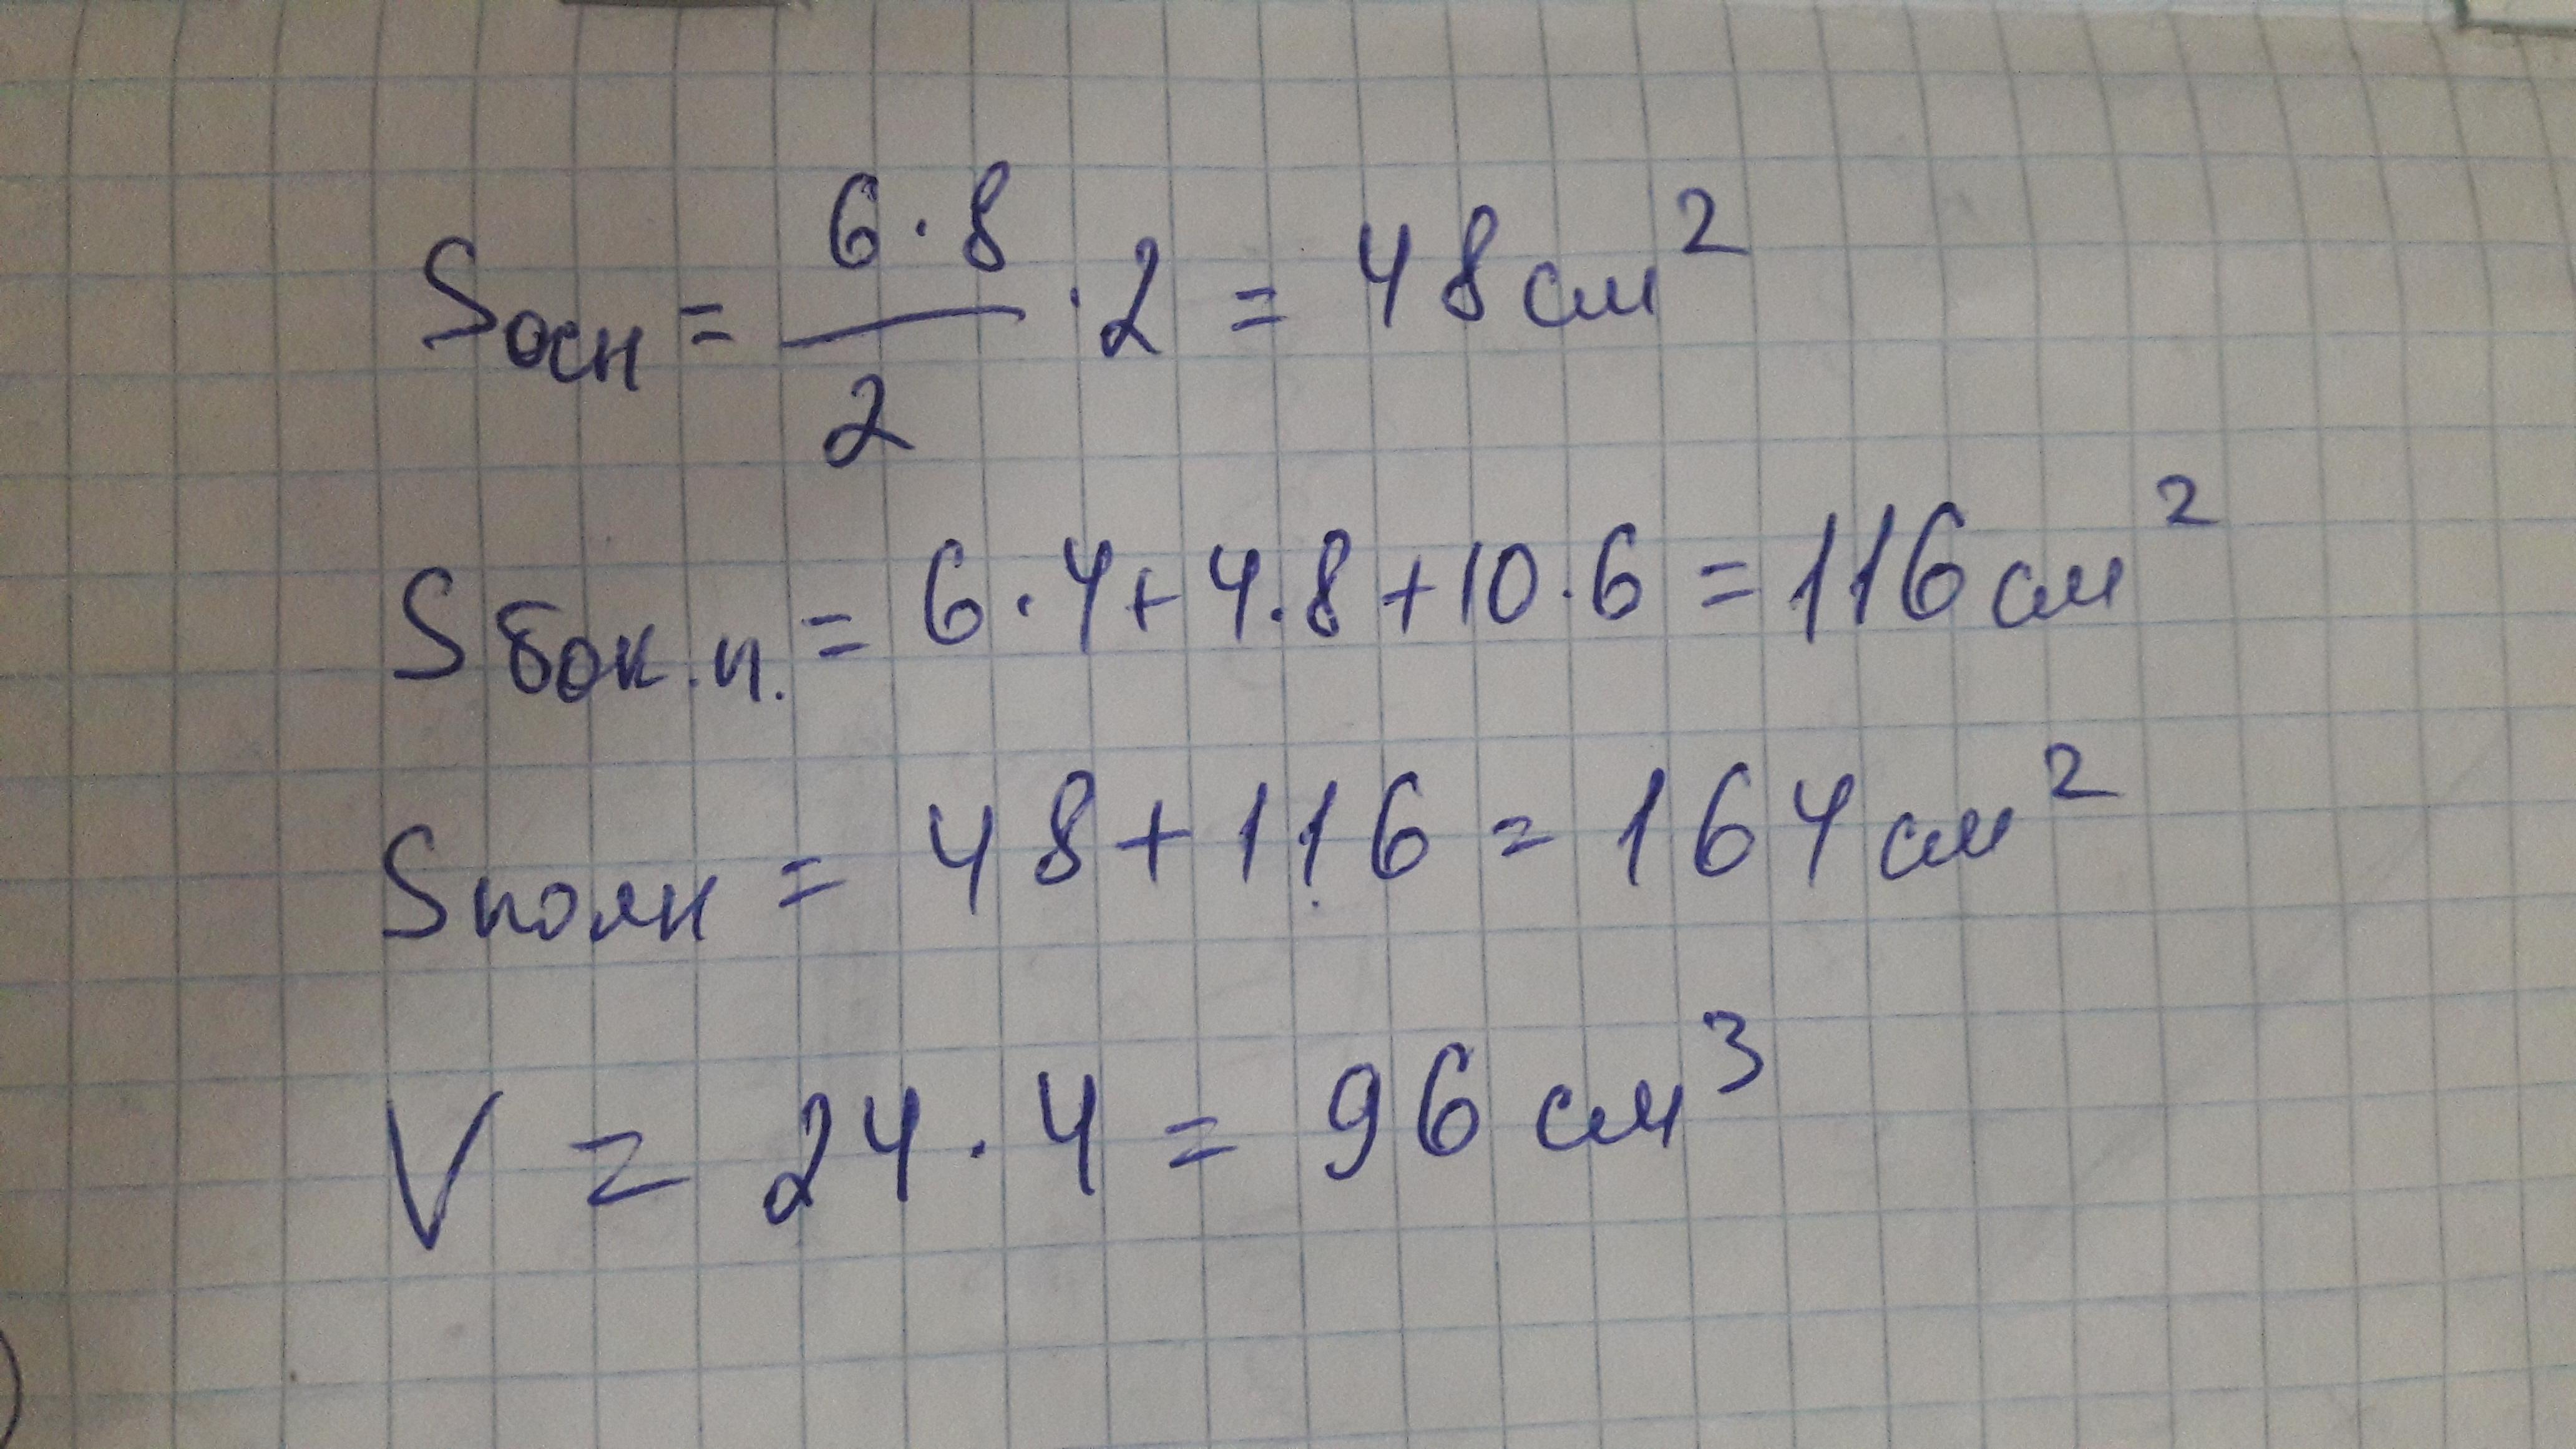 Sосн = 6·8/2 · 2 = 48 см²
Sбок.п. = 6·4+4·8+10·6 = 116 см²
Sполн = 48+116 = 164 см²
V = 24·4 = 96 см³